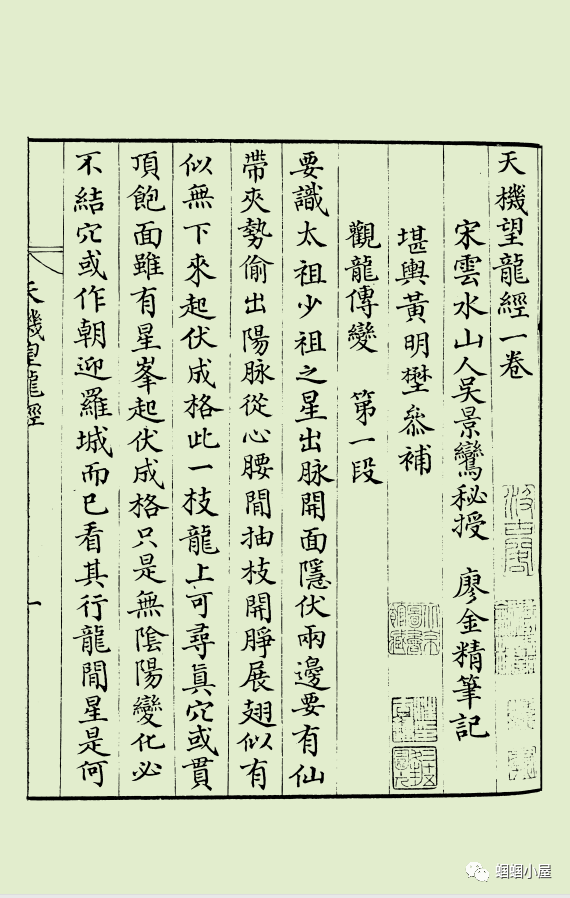 天機望龍經一卷
宋雲水山人吳景鸞秘授　廖金精筆記
堪輿黃明㙪叅補
觀龍傳變　第一段
要識太祖少祖之星出脉開面隱伏兩邊要有仙
帶夾勢偷出陽脉從心腰間抽枝開脝展翅似有
似無下來起伏成格此一枝龍上可尋眞穴或貫
頂飽面雖有星峯起伏成格只是無陰陽變化必
不結穴或作朝迎羅城而已看其行龍間星是何
天機望龍經
一
蝈蝈小屋